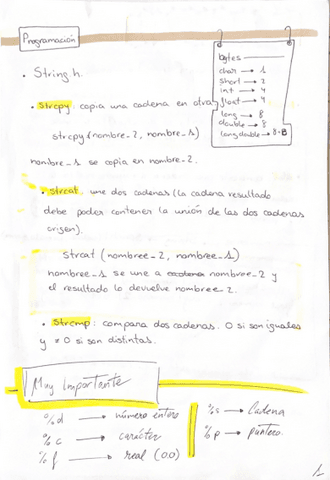 Programación
bytes
char → 1
short → 2
int → 4
float → 4
long → 8
double → 8
long double → 8-B
• String.h.
• Strcpy: copia una cadena en otra
strcpy (nombre_2, nombre_1)
nombre_1 se copia en nombre_2.
• strcat: une dos cadenas (la cadena resultado
debe poder contener la unión de las dos cadenas
origen).
strcat (nombre_2, nombre_1)
nombree_1 se une a nombree_2 y
el resultado lo devuelve nombree_2.
• Strcmp: compara dos cadenas. 0 si son iguales
y ≠ 0 si son distintas.
Muy Importante
%d → número entero
%c → carácter
%f → real (0.0)
%s → Cadena
%p → puntero.
1